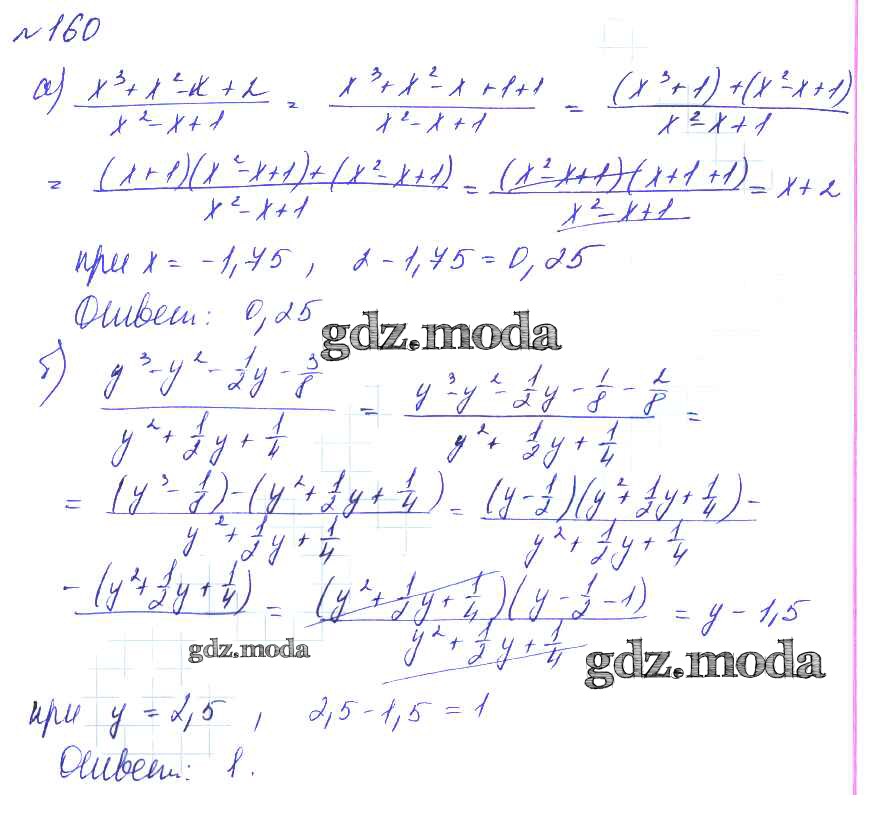 №160
а) (x³+x²-x+2)/(x²-x+1) = (x³+x²-x+1+1)/(x²-x+1) = ((x³+1)+(x²-x+1))/(x²-x+1)
= ((x+1)(x²-x+1)+(x²-x+1))/(x²-x+1) = ((x²-x+1)(x+1+1))/(x²-x+1) = x+2
при x = -1,75 , 2-1,75 = 0,25
Ответ: 0,25
gdz.moda
б) (y³-y²-1/2y-3/8)/(y²+1/2y+1/4) = (y³-y²-1/2y-1/8-2/8)/(y²+1/2y+1/4) =
= ((y³-1/8)-(y²+1/2y+1/4))/(y²+1/2y+1/4) = ((y-1/2)(y²+1/2y+1/4)-)/(y²+1/2y+1/4)
(-(y²+1/2y+1/4))/ = ((y²+1/2y+1/4)(y-1/2-1))/(y²+1/2y+1/4) = y-1,5
gdz.moda
gdz.moda
при y = 2,5 , 2,5-1,5 = 1
Ответ: 1.